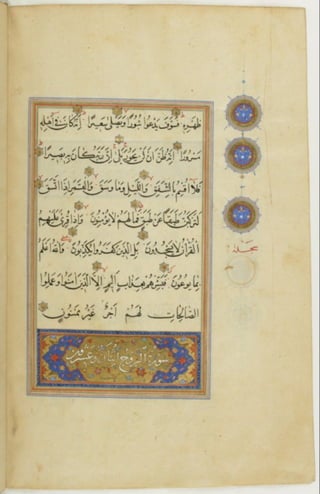 ظَهْرِهِ فَسَوْفَ يَدْعُوا ثُبُورًا وَيَصْلَى سَعِيرًا إِنَّهُ كَانَ فِي أَهْلِهِ
مَسْرُورًا إِنَّهُ ظَنَّ أَنْ لَنْ يَحُورَ بَلَى إِنَّ رَبَّهُ كَانَ بِهِ بَصِيرًا
فَلَا أُقْسِمُ بِالشَّفَقِ وَاللَّيْلِ وَمَا وَسَقَ وَالْقَمَرِ إِذَا اتَّسَقَ
لَتَرْكَبُنَّ طَبَقًا عَنْ طَبَقٍ فَمَا لَهُمْ لَا يُؤْمِنُونَ وَإِذَا قُرِئَ عَلَيْهِمُ
الْقُرْآنُ لَا يَسْجُدُونَ بَلِ الَّذِينَ كَفَرُوا يُكَذِّبُونَ وَاللَّهُ أَعْلَمُ
بِمَا يُوعُونَ فَبَشِّرْهُمْ بِعَذَابٍ أَلِيمٍ إِلَّا الَّذِينَ آمَنُوا وَعَمِلُوا
الصَّالِحَاتِ لَهُمْ أَجْرٌ غَيْرُ مَمْنُونٍ
سورة البروج
سجدة